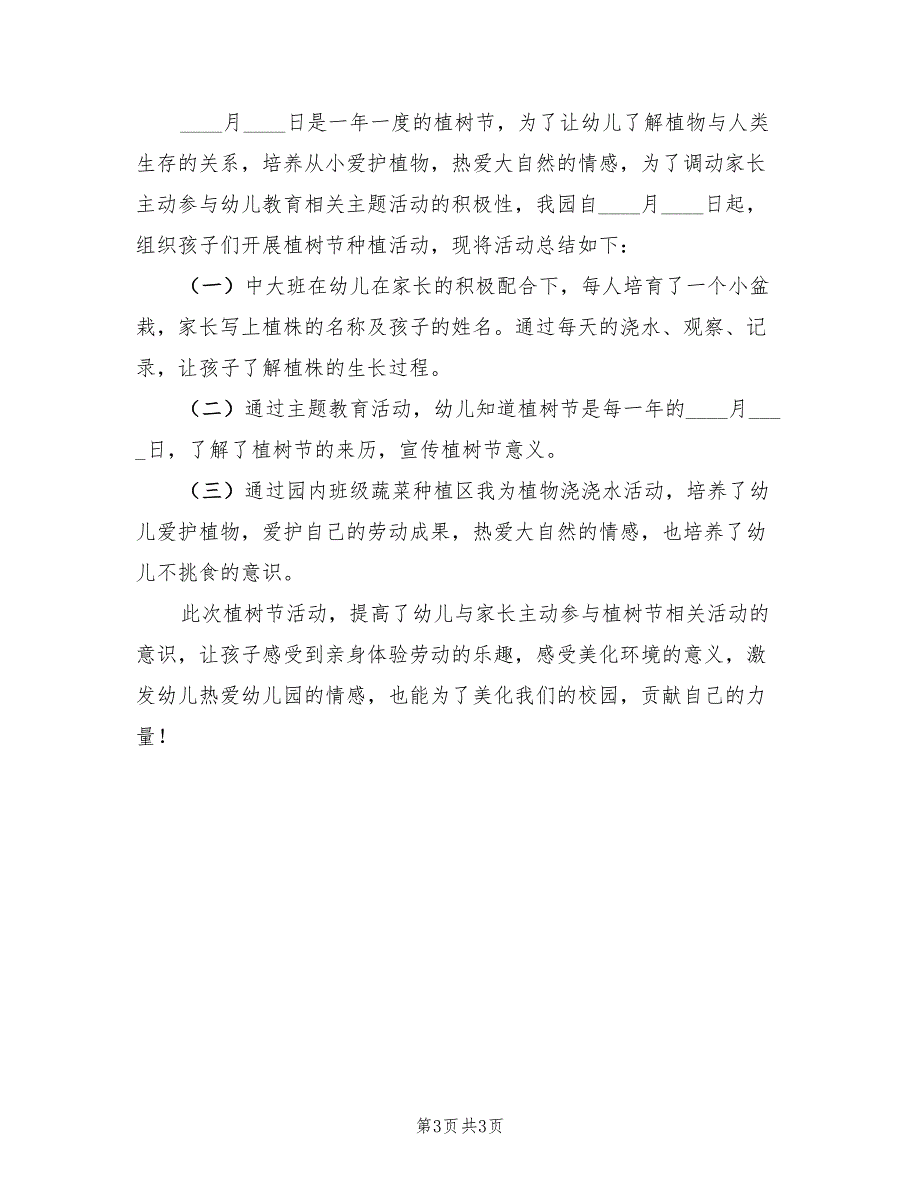 ____月____日是一年一度的植树节，为了让幼儿了解植物与人类
生存的关系，培养从小爱护植物，热爱大自然的情感，为了调动家长
主动参与幼儿教育相关主题活动的积极性，我园自____月____日起，
组织孩子们开展植树节种植活动，现将活动总结如下：
（一）中大班在幼儿在家长的积极配合下，每人培育了一个小盆
栽，家长写上植株的名称及孩子的姓名。通过每天的浇水、观察、记
录，让孩子了解植株的生长过程。
（二）通过主题教育活动，幼儿知道植树节是每一年的____月___
_日，了解了植树节的来历，宣传植树节意义。
（三）通过园内班级蔬菜种植区我为植物浇浇水活动，培养了幼
儿爱护植物，爱护自己的劳动成果，热爱大自然的情感，也培养了幼
儿不挑食的意识。
此次植树节活动，提高了幼儿与家长主动参与植树节相关活动的
意识，让孩子感受到亲身体验劳动的乐趣，感受美化环境的意义，激
发幼儿热爱幼儿园的情感，也能为了美化我们的校园，贡献自己的力
量！
第3页 共3页